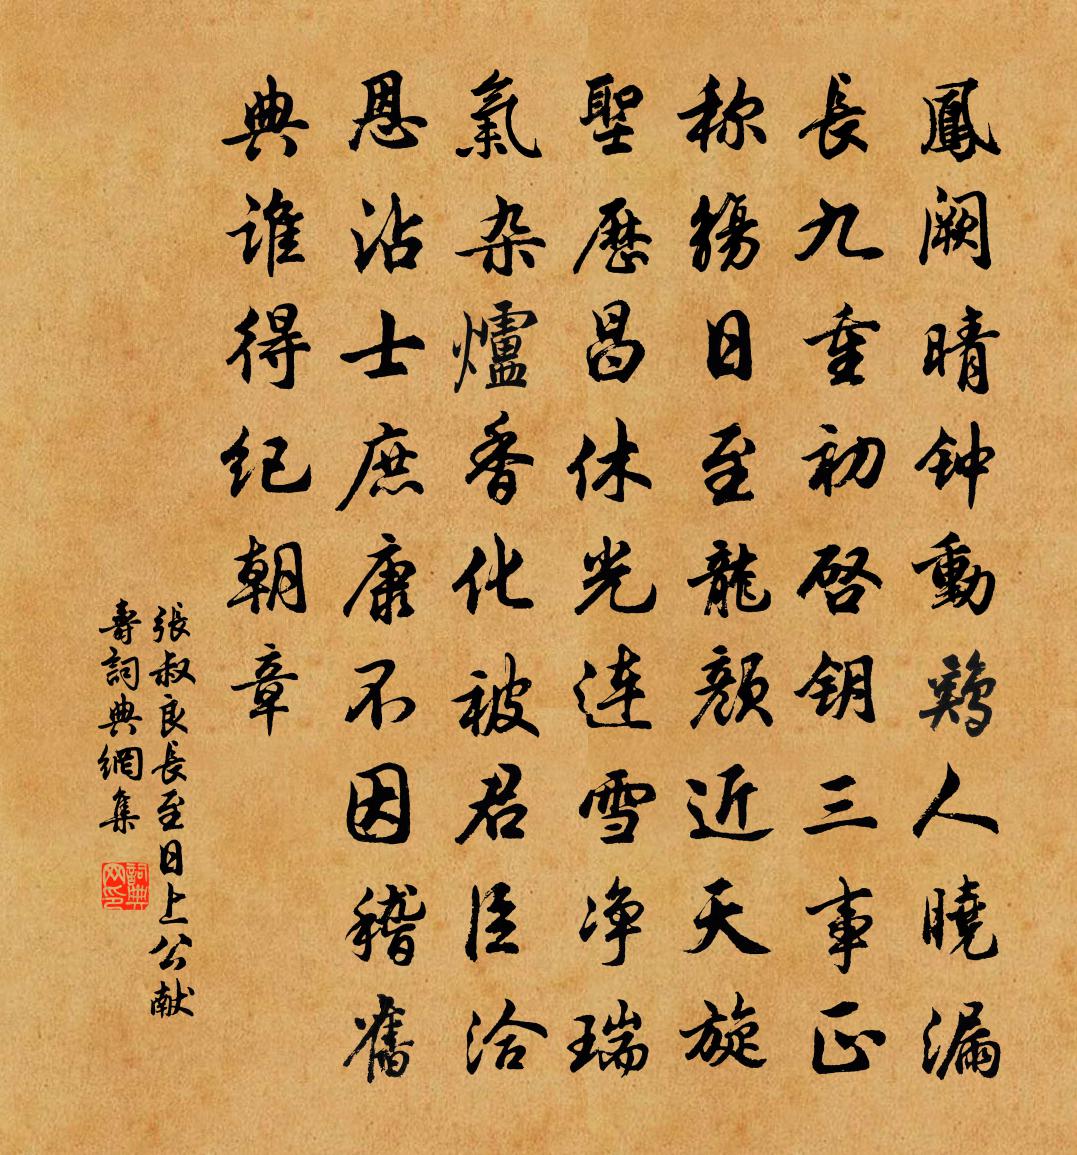 鳳阙晴钟動鷄人曉漏
長九重初启钥三事正
称觴日至龍顔近天旋
聖曆昌休光连雪净瑞
氣杂爐香化被君臣洽
恩沾士庶康不因稽舊
典谁得纪朝章
張叔良長至日上公献
壽詞典網集
詞典网印